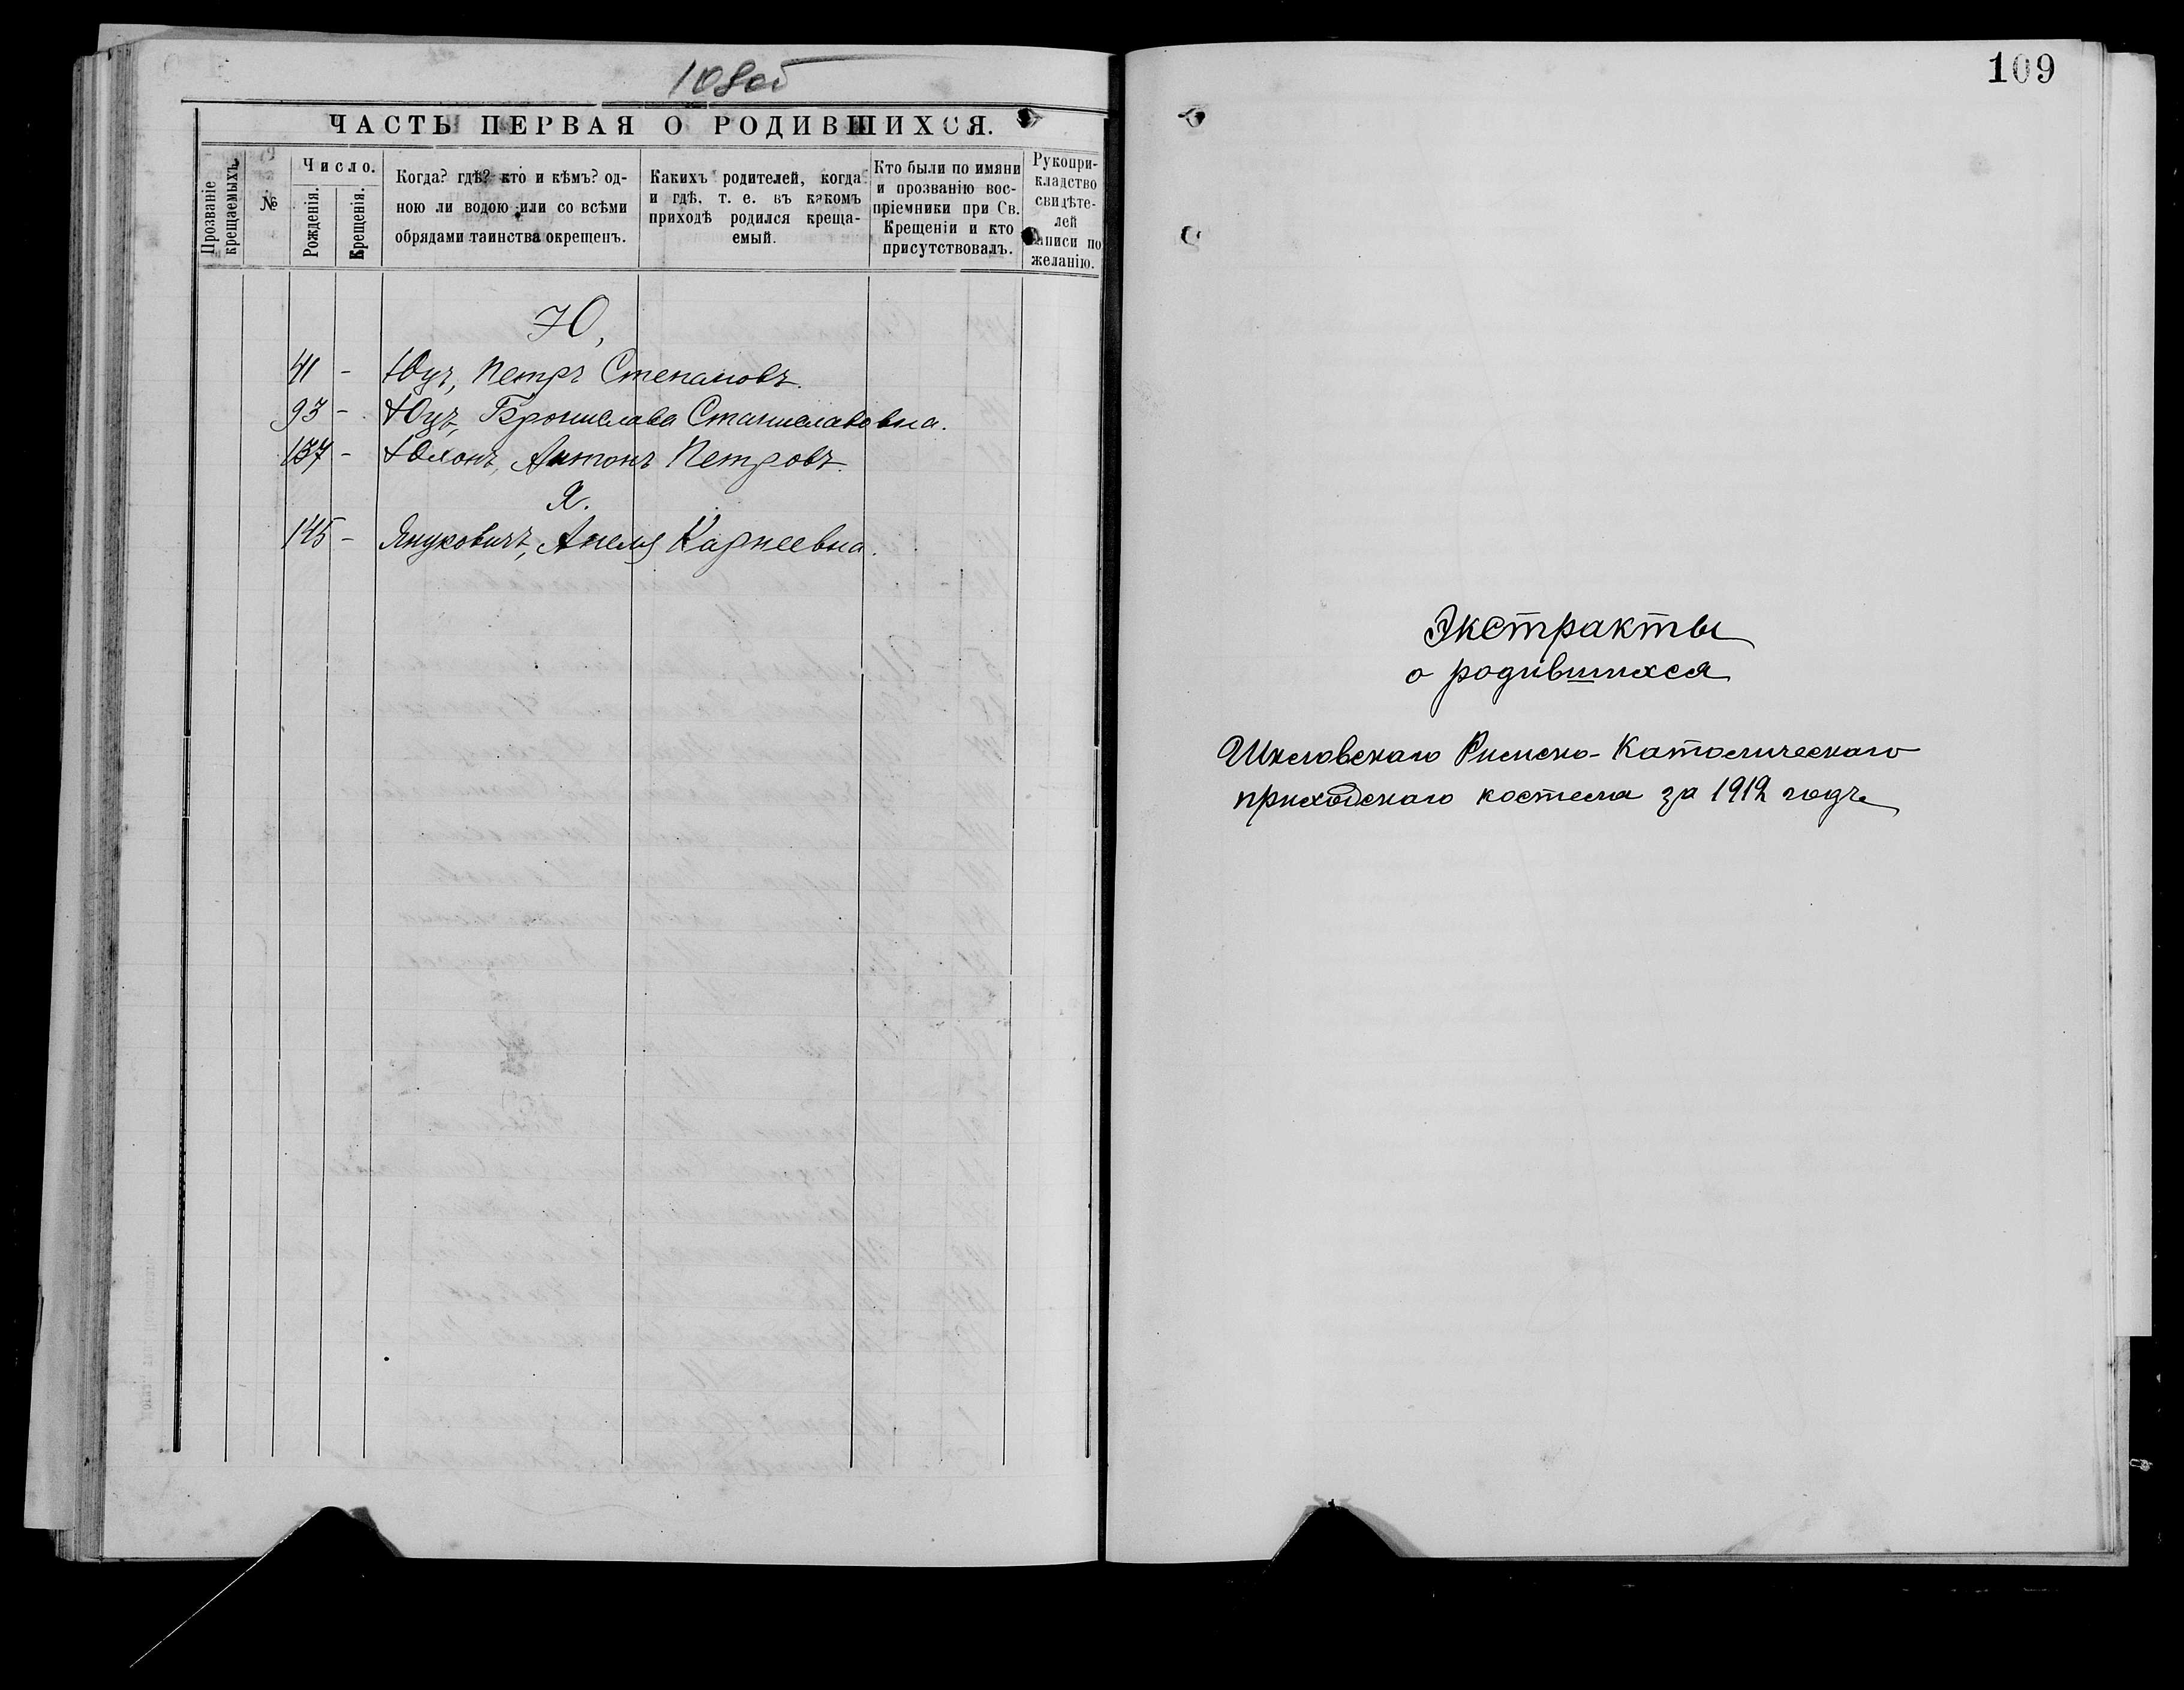 108об
ЧАСТЬ ПЕРВАЯ О РОДИВШИХСЯ.
Прозваніе крещаемыхъ.
№
Число.
Рожденія.
Крещенія.
Когда? гдѣ? кто и кѣмъ? од-
ною ли водою или со всѣми
обрядами таинства окрещенъ.
Какихъ родителей, когда
и гдѣ, т. е. въ какомъ
приходѣ родился креща-
емый.
Кто были по имяни
и прозванію вос-
пріемники при Св.
Крещеніи и кто
присутствовалъ.
Рукопри-
кладство
свидѣте-
лей
записи по
желанію.
Ю,
41 - Юцъ, Петръ Степановъ.
93 - Юцъ, Бронислава Станиславовна.
137 - Юхонъ, Антонъ Петровъ.
Я.
145 - Януковичъ, Анеля Карнеевна.
109
Экстракты
о родившихся
Шкловскаго Римско-Католическаго
приходскаго костела за 1912 годъ